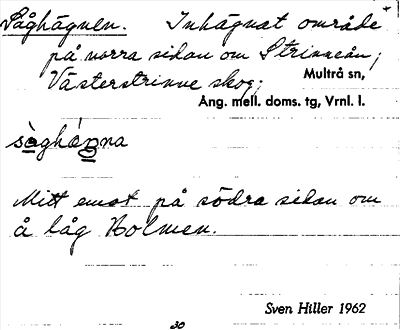 Såghägnen. Inhägnat område
på norra sidan om Strinneån;
Västerstrinne skog; Multrå sn,
Ång. mell. doms. tg, Vrnl. l.
Mitt emot på södra sidan om
å låg Holmen.
Sven Hiller 1962
30